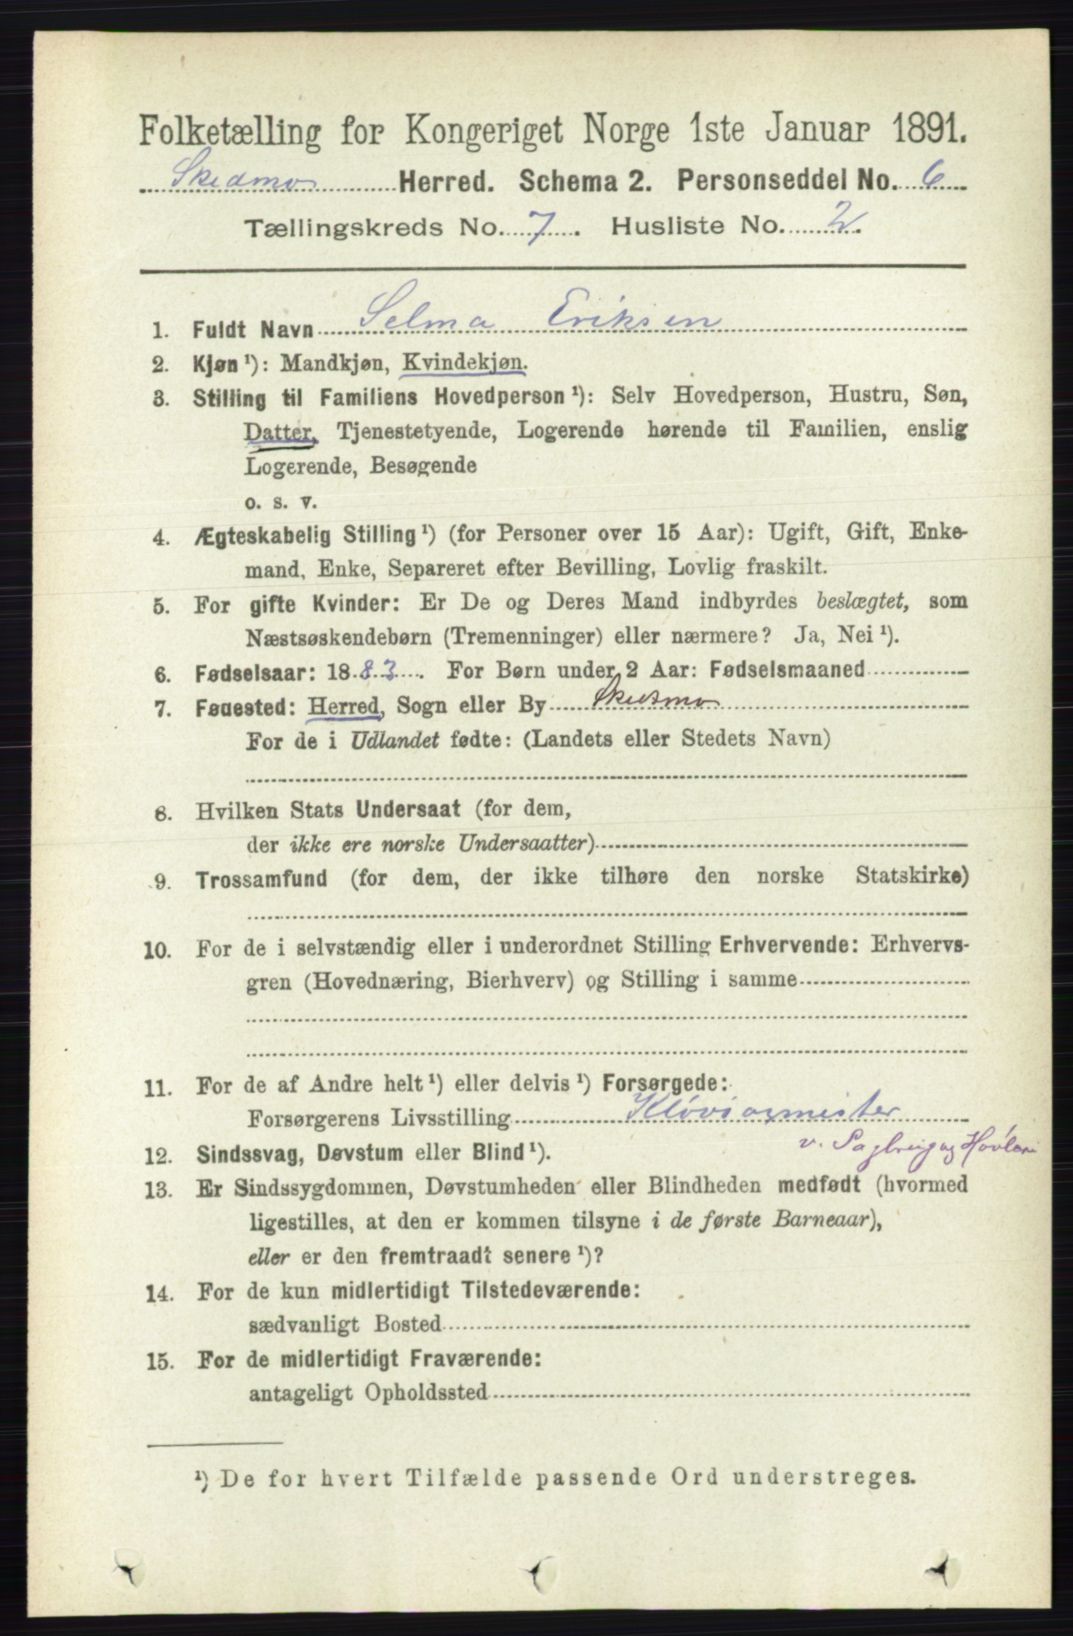 Folketælling for Kongeriget Norge 1ste Januar 1891.
Skedmo Herred. Schema 2. Personseddel No. 6
Tællingskreds No. 7. Husliste No. 2.
1. Fuldt Navn Selma Eriksen
2. Kjøn¹): Mandkjøn, Kvindekjøn.
3. Stilling til Familiens Hovedperson¹): Selv Hovedperson, Hustru, Søn,
Datter, Tjenestetyende, Logerende hørende til Familien, enslig
Logerende, Besøgende
o. s. v.
4. Ægteskabelig Stilling¹) (for Personer over 15 Aar): Ugift, Gift, Enke-
mand, Enke, Separeret efter Bevilling, Lovlig fraskilt.
5. For gifte Kvinder: Er De og Deres Mand indbyrdes beslægtet, som
Næstsøskendebørn (Tremenninger) eller nærmere? Ja, Nei¹).
6. Fødselsaar: 1883. For Børn under 2 Aar: Fødselsmaaned
7. Fødested: Herred, Sogn eller By Skedsmo
For de i Udlandet fødte: (Landets eller Stedets Navn)
8. Hvilken Stats Undersaat (for dem,
der ikke ere norske Undersaatter)
9. Trossamfund (for dem, der ikke tilhøre den norske Statskirke)
10. For de i selvstændig eller i underordnet Stilling Erhvervende: Erhvervs-
gren (Hovednæring, Bierhverv) og Stilling i samme
11. For de af Andre helt¹) eller delvis¹) Forsørgede:
Forsørgerens Livsstilling
v. Sagbrug og
12. Sindssvag, Døvstum eller Blind¹).
13. Er Sindssygdommen, Døvstumheden eller Blindheden medfødt (hvormed
ligestilles, at den er kommen tilsyne i de første Barneaar),
eller er den fremtraadt senere¹)?
14. For de kun midlertidigt Tilstedeværende:
sædvanligt Bosted
15. For de midlertidigt Fraværende:
antageligt Opholdssted
¹) De for hvert Tilfælde passende Ord understreges.